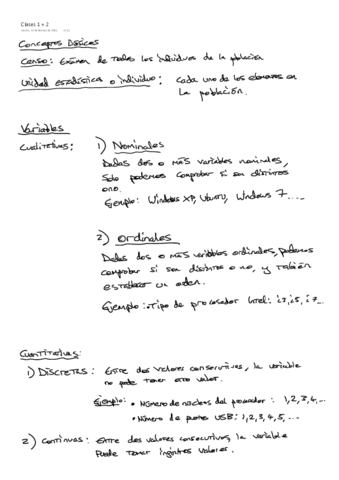 Clases 1 + 2
Conceptos Básicos
Censo: Examen de todos los individuos de la población
Unidad estadística o individuo: cada uno de los elementos en
la población.
Variables
Cualitativas:
1) Nominales
Dadas dos o más variables nominales,
solo podemos comprobar si son distintos
ono.
Ejemplo: Windows XP, Ubuntu, Windows 7....
2) Ordinales
Dadas dos o más variables ordinales, podemos
comprobar si son distintas o no, y también
establecer un orden.
Ejemplo: Tipo de procesador Intel: i3, i5, i7...
Cuantitativas:
1) DISCRETAS: Entre dos valores consecutivos, la variable
no puede tomar otro valor.
Ejemplo: • Número de nucleos del procesador: 1,2,3,4,...
• Número de puertos USB: 1,2,3,4,5,...
2) Continuas: Entre dos valores consecutivos, la variable
Puede tomar infinitos valores.